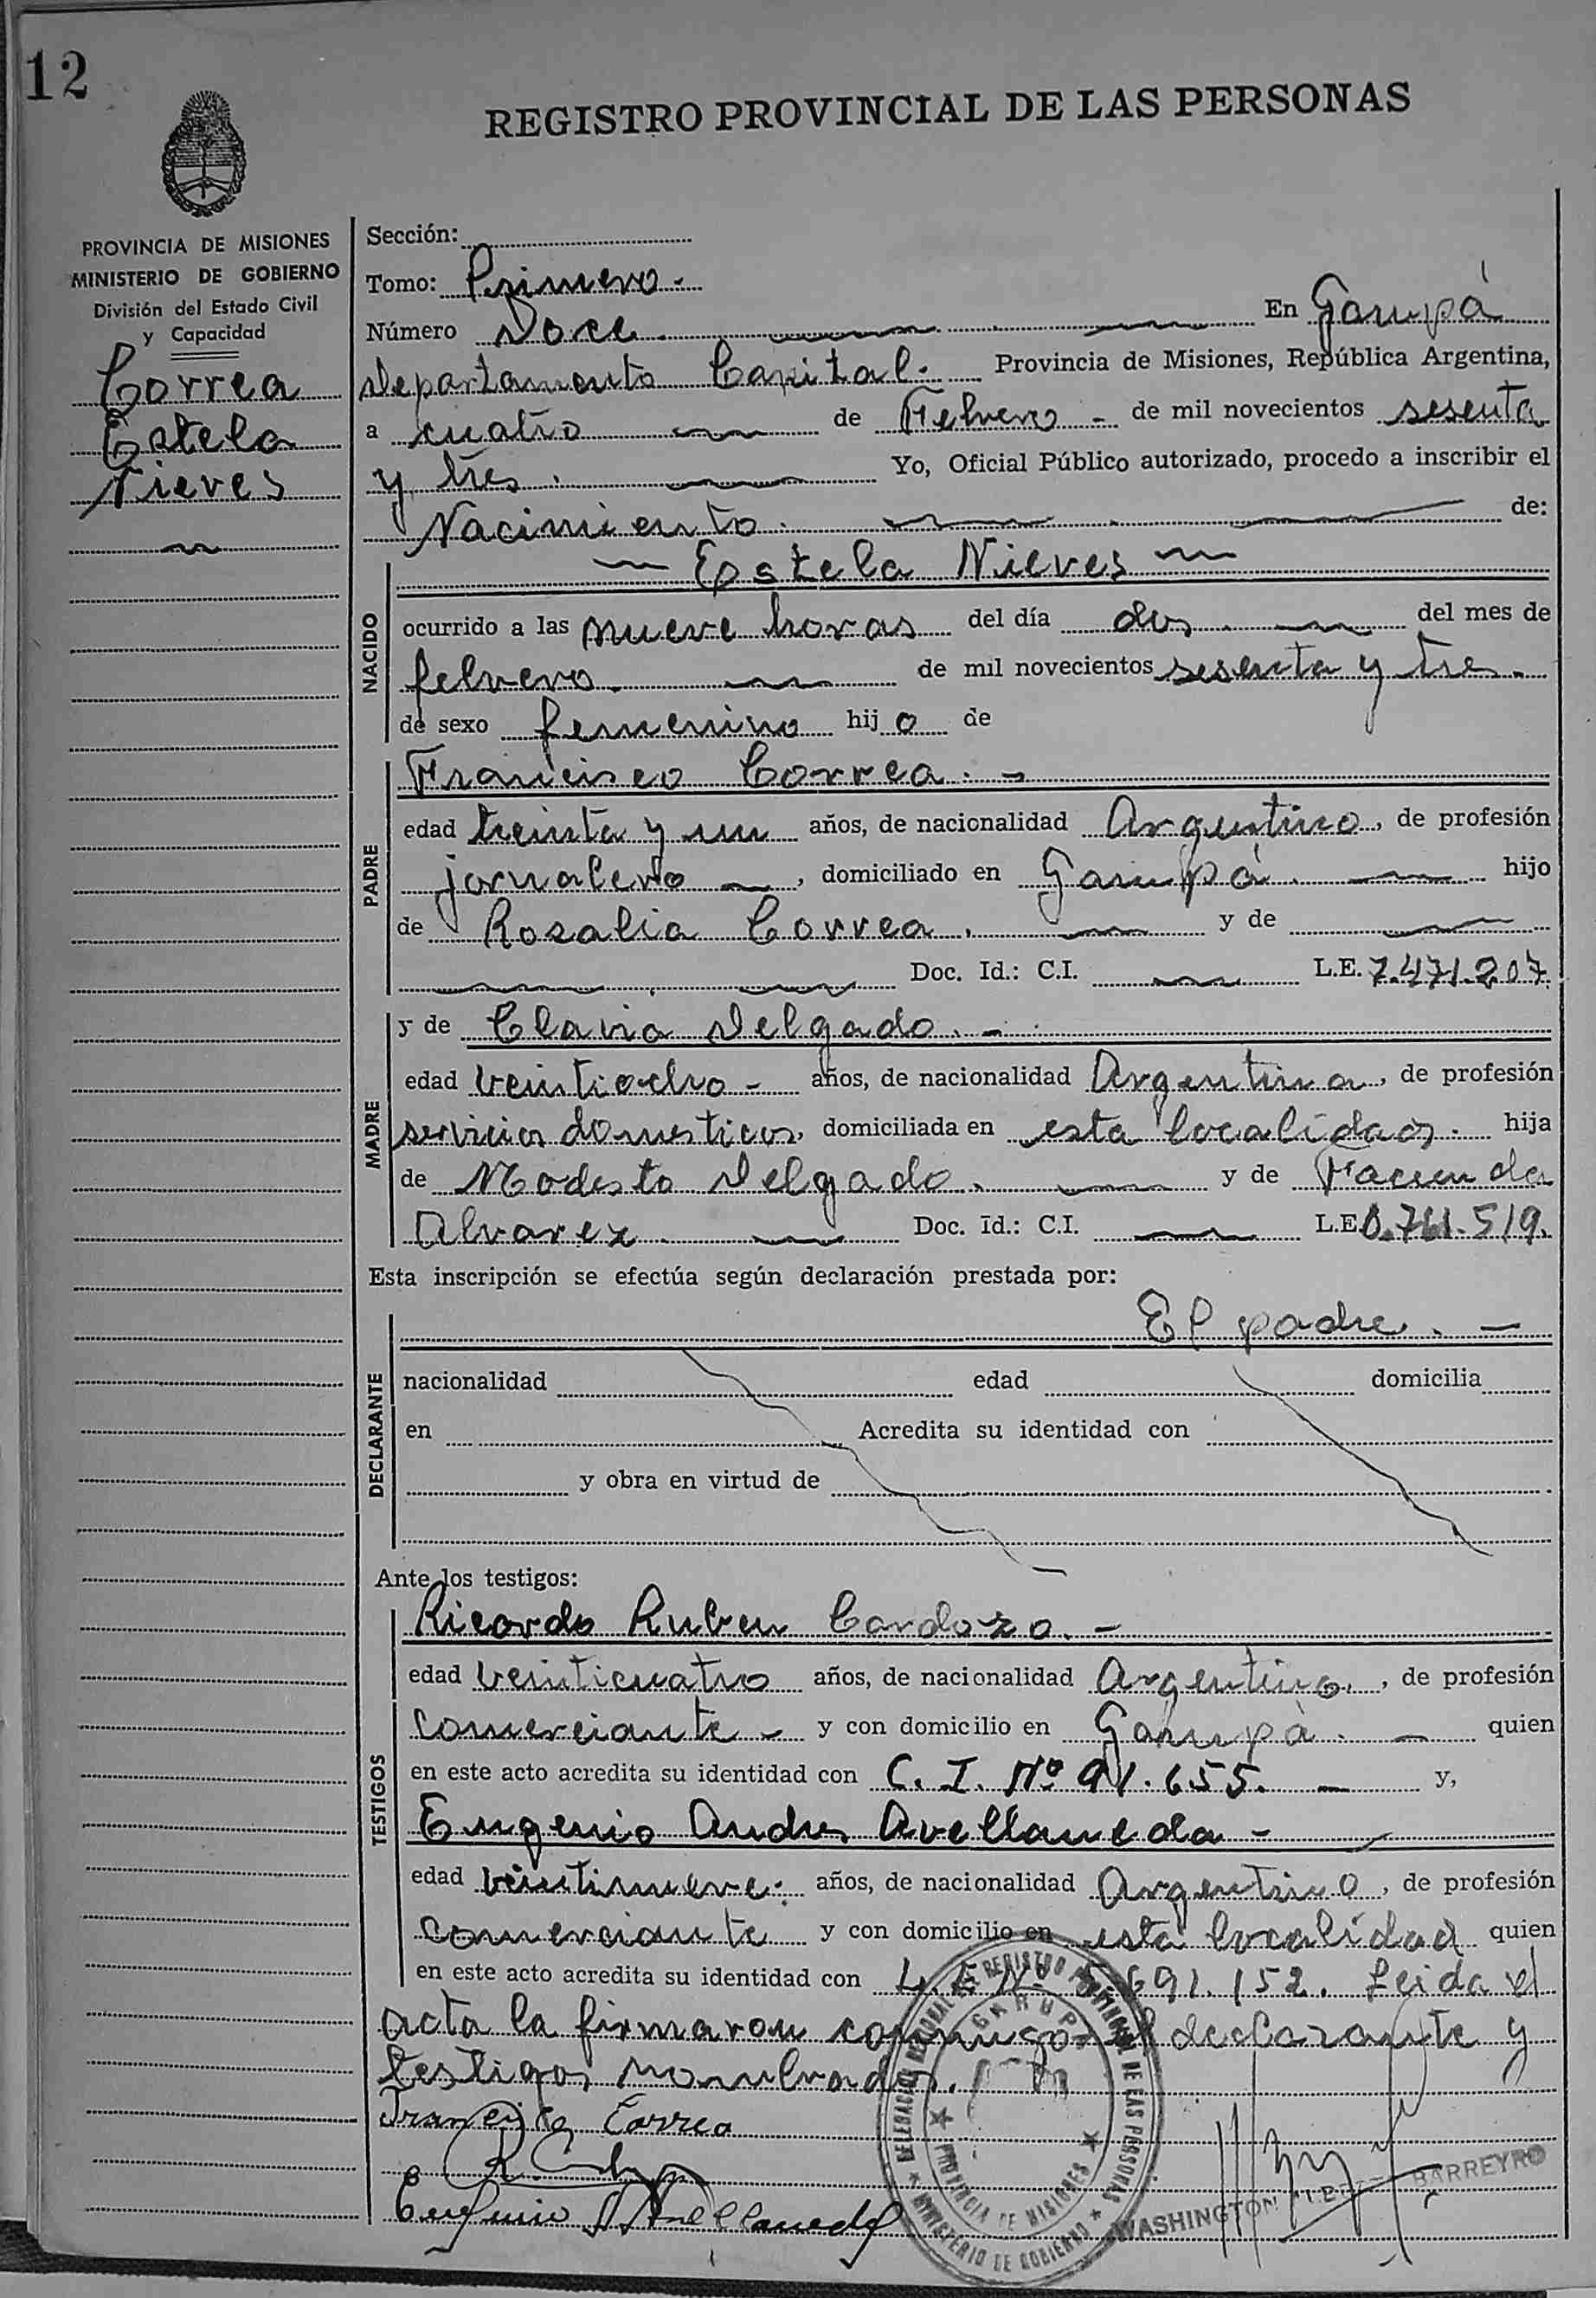 12
REGISTRO PROVINCIAL DE LAS PERSONAS
PROVINCIA DE MISIONES
MINISTERIO DE GOBIERNO
División del Estado Civil
y Capacidad
Correa
Estela
Nieves
Sección:
Tomo: Primero.
Número Doce. En Garupá
departamento Capital. Provincia de Misiones, República Argentina,
a cuatro de Febrero - de mil novecientos sesenta
y tres. Yo, Oficial Público autorizado, procedo a inscribir el
Nacimiento. de:
NACIDO
Estela Nieves
ocurrido a las nueve horas del día dos. del mes de
febrero. de mil novecientos sesenta y tres.
de sexo femenino hijo de
PADRE
Francisco Correa. -
edad treinta y un años, de nacionalidad Argentino, de profesión
jornalero, domiciliado en Garupá. hijo
de Rosalia Correa. y de
Doc. Id.: C.I. L.E. 7.471.207
MADRE
y de Claria Delgado. -
edad veintiocho - años, de nacionalidad Argentina, de profesión
servicios domesticos, domiciliada en esta localidad. hija
de Modesto Delgado. y de
Alvarez. Doc. Id.: C.I. L.E. 0.761.519.
Esta inscripción se efectúa según declaración prestada por:
DECLARANTE
El padre. -
nacionalidad edad domicilia
en Acredita su identidad con
y obra en virtud de
Ante los testigos:
TESTIGOS
Ricardo Ruben Cardozo. -
edad veinticuatro años, de nacionalidad Argentino, de profesión
comerciante - y con domicilio en Garupà. - quien
en este acto acredita su identidad con C. I. Nº 91.655. - y,
Eugenio Andres Avellaneda -
edad veintinueve. años, de nacionalidad Argentino, de profesión
comerciante y con domicilio en esta localidad quien
en este acto acredita su identidad con L. E. Nº 5.691.152. Leida el
acta la firmaron conmigo el declarante y
testigos nombrados.
Francisco Correa
Eugenio A Avellaneda
DELEGACION REGIONAL DE REGISTRO PROVINCIAL DE LAS PERSONAS
GARUPA
PROVINCIA DE MISIONES
MINISTERIO DE GOBIERNO
WASHINGTON BARREYRO